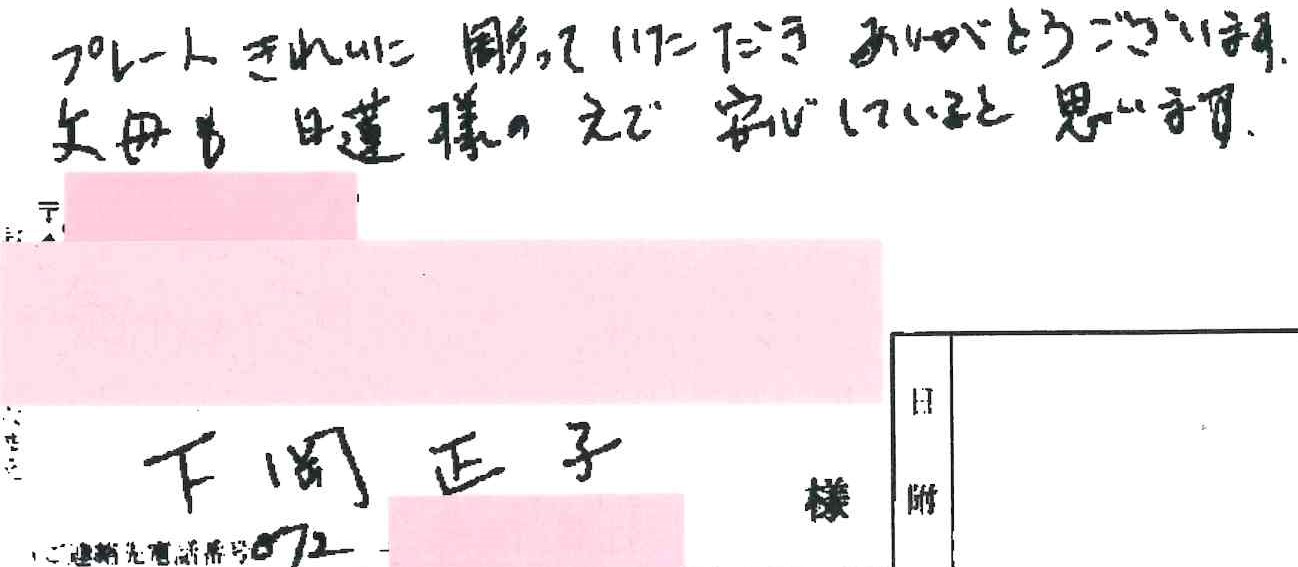 プレートきれいに 彫っていただき ありがとうございます.
父母も 日蓮様の元で 安心していると 思います.
〒
下岡 正子 様
ご連絡先電話番号 072 -
日附